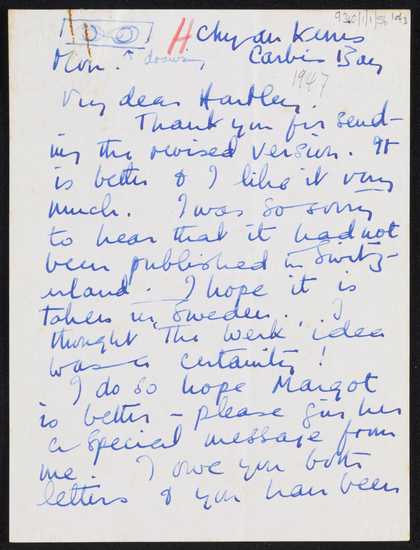 9310/1/1/56 1 of 3
H Chy an Kerris
Mon. ↑ drawing Carbis Bay
1947
My dear Hartley.
Thank you for send-
ing the revised version. It
is better & I like it very
much. I was so sorry
to hear that it had not
been published in Switz-
erland. I hope it is
taken in Sweden. I
thought the Werk idea
was a certainity!
I do so hope Margot
is better – please give her
a special message from
me. I owe you both
letters & you have been